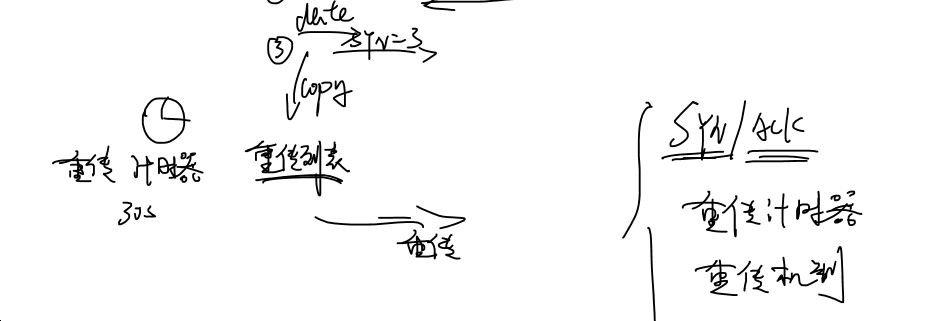 date
③ SYN=3
copy
重传计时器
30s
重传列表
重传
SYN/ACK
重传计时器
重传机制